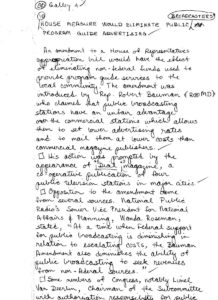 Galley 4
BROADCASTERS
HOUSE MEASURE WOULD ELIMINATE PUBLIC
PROGRAM GUIDE ADVERTISING
An amendment to a House of Representatives
appropriation bill would have the effect
of eliminating non-federal funds used to
provide program guide services to the
local community. The amendment was
introduced by Rep. Robert Bauman (R-MD)
who claimed that public broadcasting
stations have an unfair advantage
over the commercial stations which allows
them to set lower advertising rates
and to sell them at lower costs than
commercial magazine publishers.
His action was prompted by the
appearance of Dial magazine, a
co-operative publication of four
public television stations in major cities.
Opposition to the amendment came
from several sources. National Public
Radio's Senior Vice President for National
Affairs & Planning, Walda Roseman,
stated, "At a time when federal support
for public broadcasting is diminishing in
relation to escalating costs, the Bauman
Amendment also diminishes the ability
of public broadcasting to seek revenues
from non-federal sources."
Some members of Congress, notably Lionel
Van Deerlin, Chairman of the Subcommittee
with authorization responsibilities for public